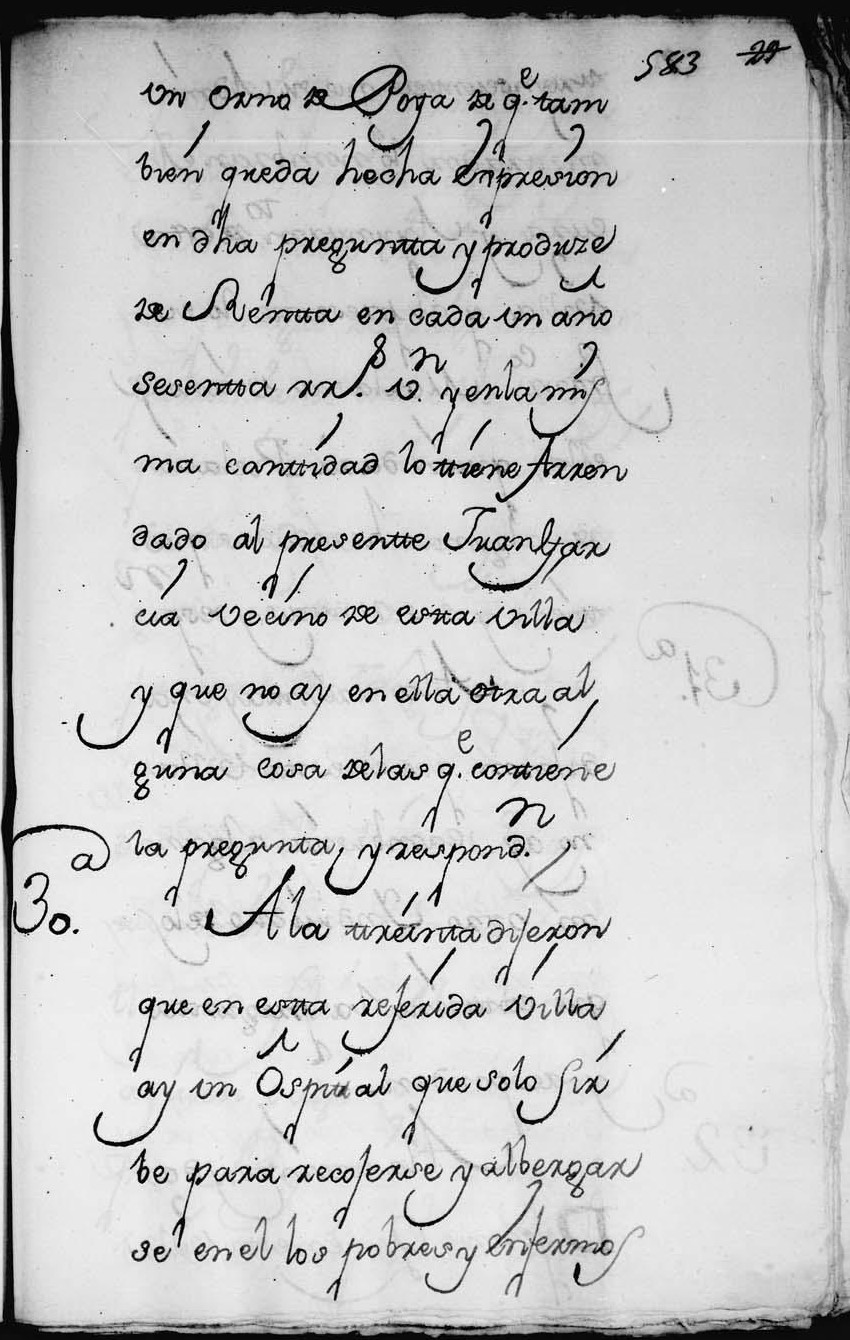 583 29
un orno de Poya de q.e tam
bien queda hecha enpresion
en dha preguntta y produze
de Rentta en cada un año
sesentta rr.s v.n y en la mis
ma canttidad lo ttiene Arren
dado al presentte Juan Gar
cia vecino de estta villa
y que no ay en ella otra al
guna cosa de las q.e conttiene
la pregunta, y respond.n
30.a
A la ttreinta dijeron
que en estta referida villa
ay un Ospittal que solo sir
be para recojerse y albergar
se en el los pobres y enfermos